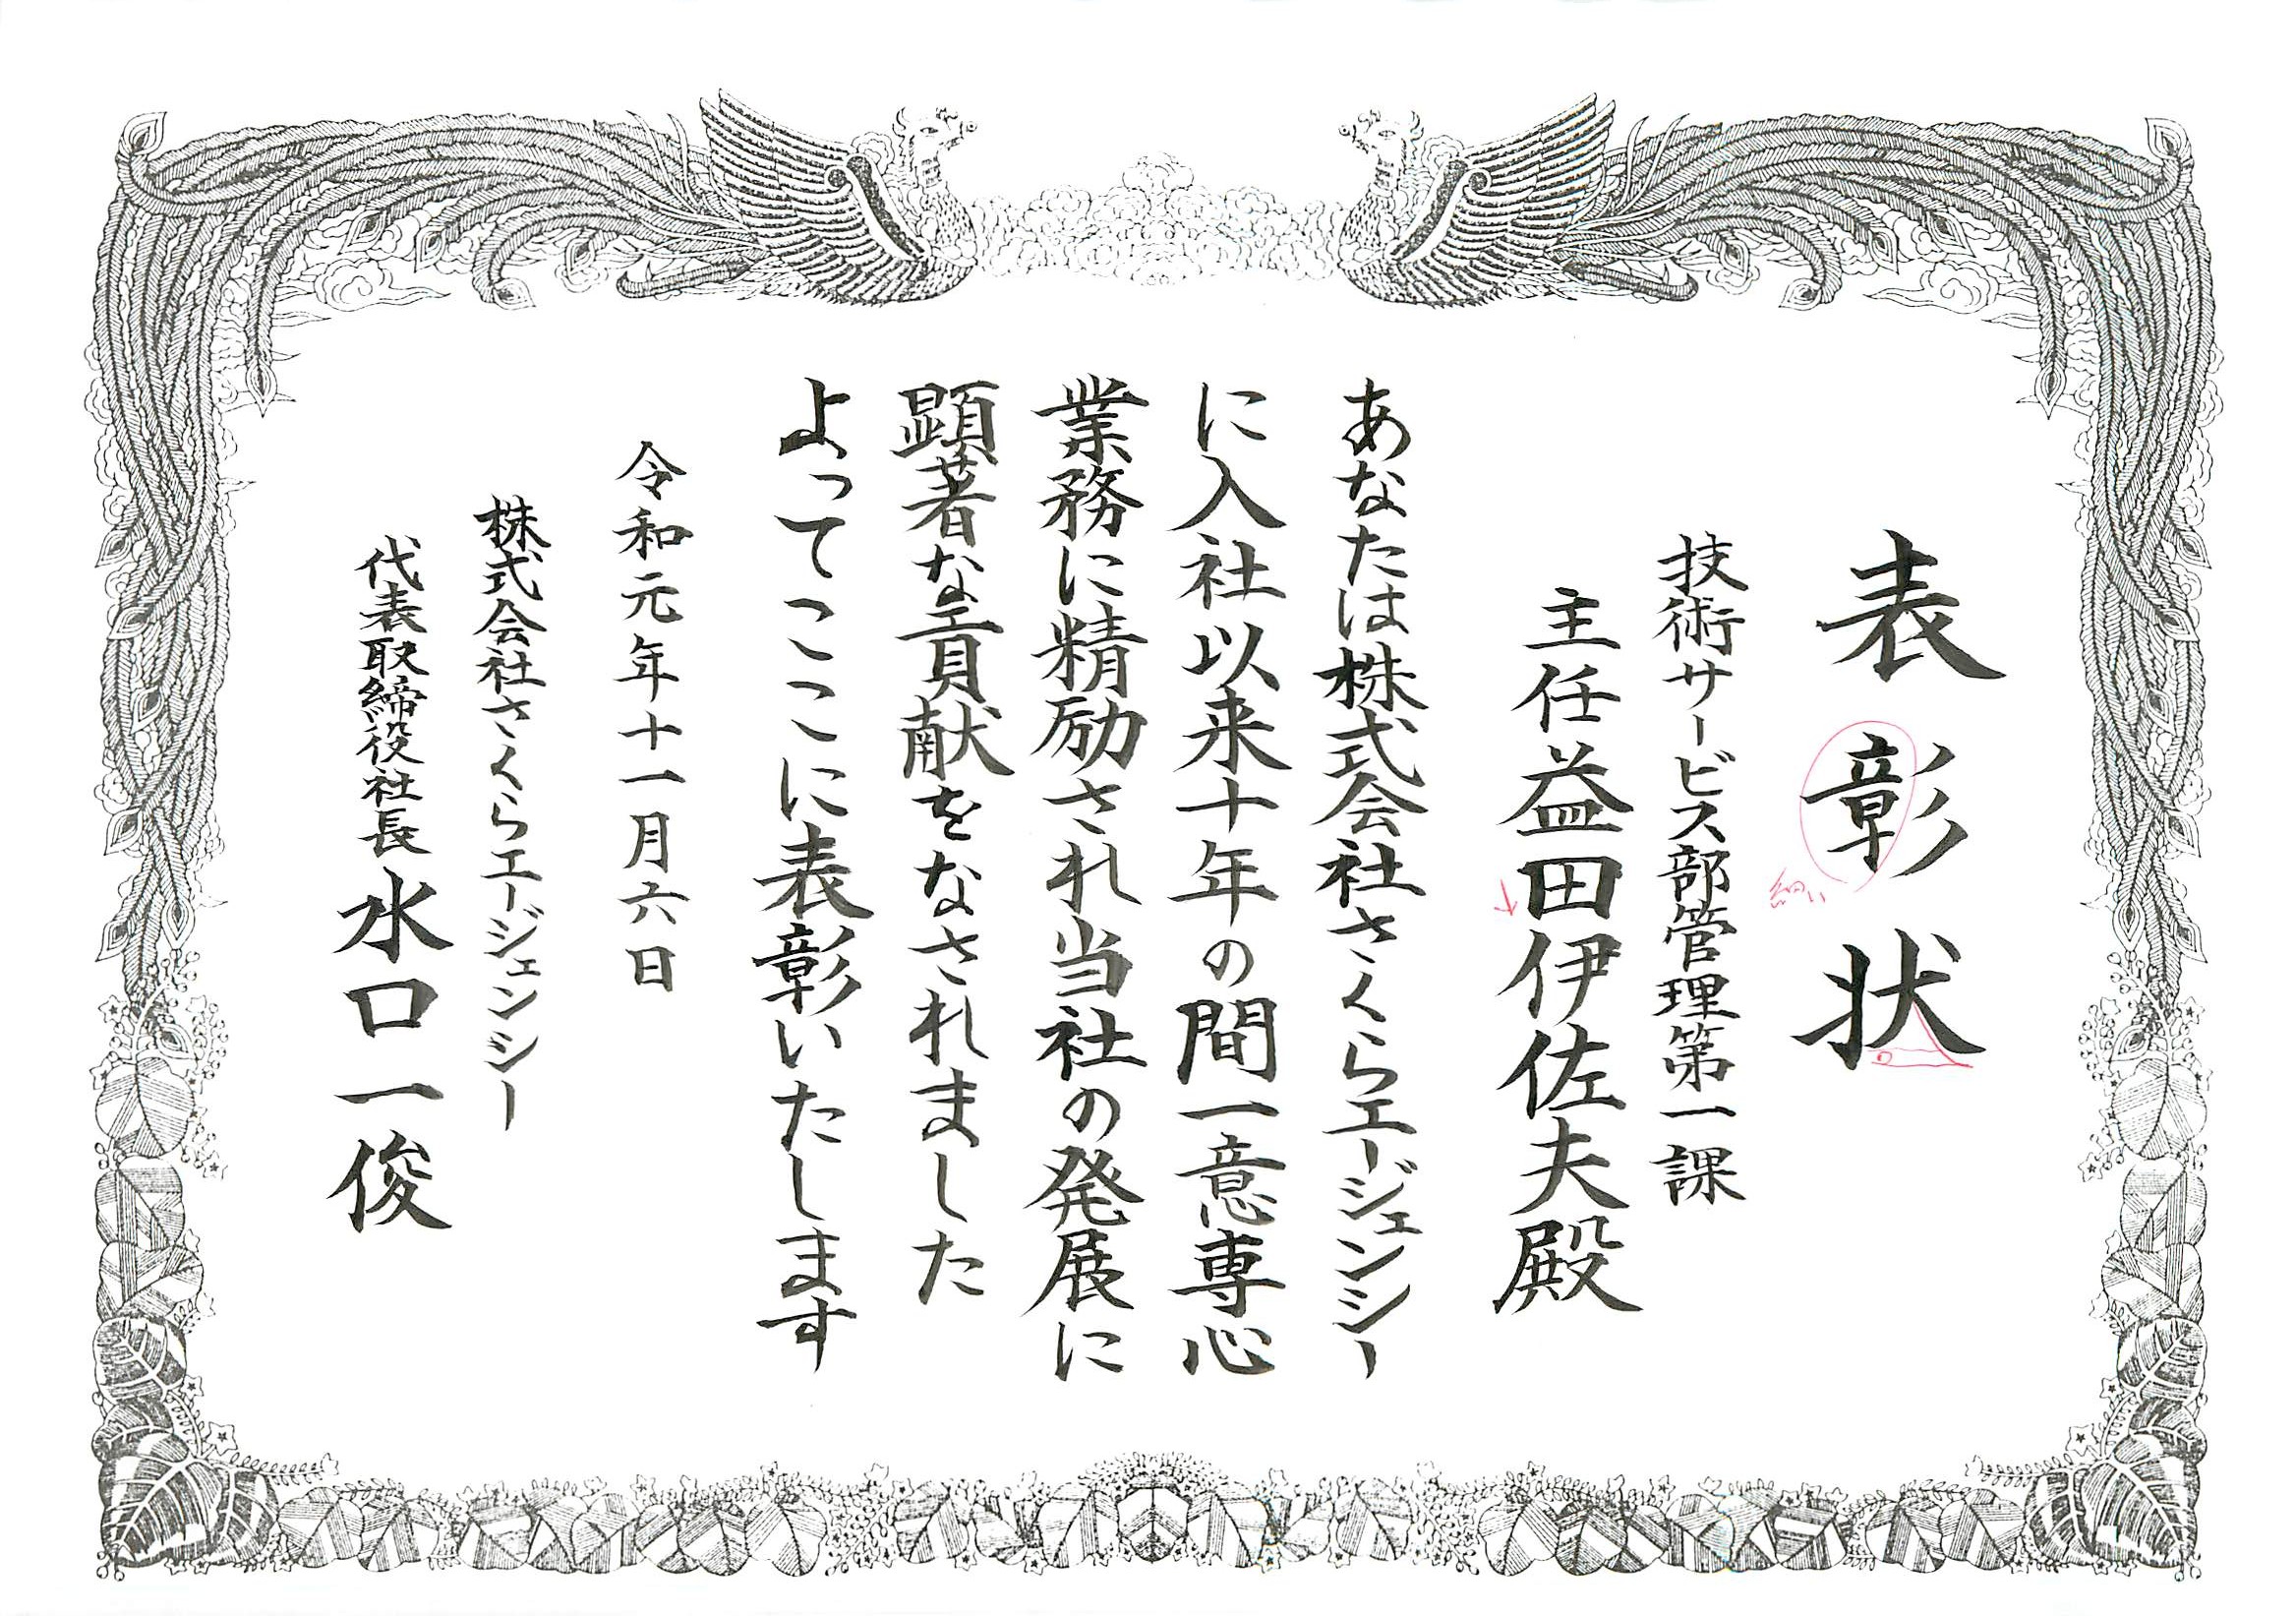 表彰状
技術サービス部管理第一課
主任益田伊佐夫殿
あなたは株式会社さくらエージェンシー
に入社以来十年の間一意専心
業務に精励され当社の発展に
顕著な貢献をなされました
よってここに表彰いたします
令和元年十一月六日
株式会社さくらエージェンシー
代表取締役社長水口一俊
細い